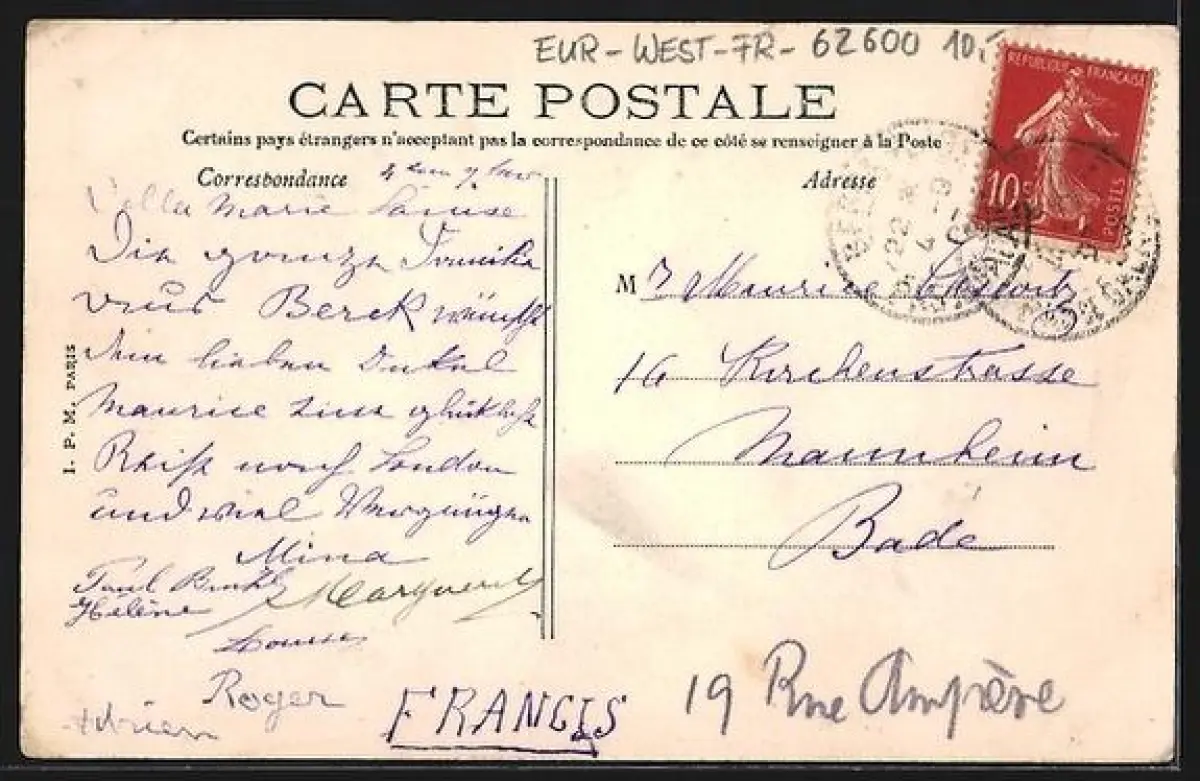 EUR-WEST-FR- 62600 10.-
CARTE POSTALE
Certains pays étrangers n'acceptant pas la correspondance de ce côté se renseigner à la Poste
Correspondance
Adresse
REPUBLIQUE FRANÇAISE
10c
POSTES
Villa Marie Louise
Die ganze Familie
aus Berck wünscht
dem lieben Onkel
Maurice eine glückliche
Reise nach London
und viel Vergnügen
Mina
Paul
Hélène
Marguerite
Louise
Roger
Adrien
FRANCIS
M Maurice
16 Kirchenstrasse
Mannheim
Bade
19 Rue Ampère
I. P. M. PARIS